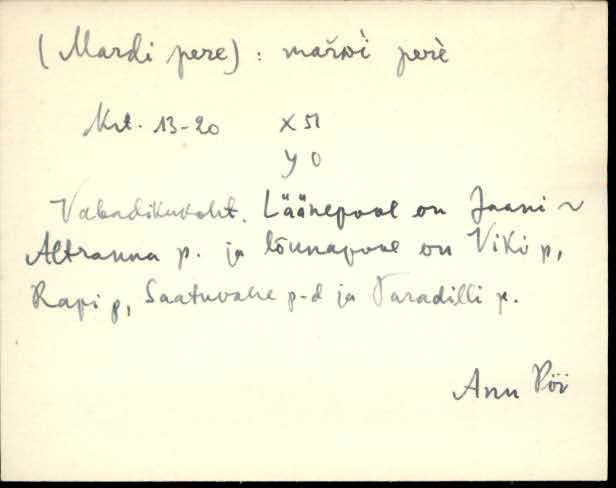 (Mardi pere) : mařdi perè
Krt. 13-20 X 51
Y 0
Vabadikukoht. Läänepool on Jaani ~
Altranna p. ja lõunapool on Viki p,
Rapi p, Saatuvahe p-d ja Varadilli p.
Anu Pöi